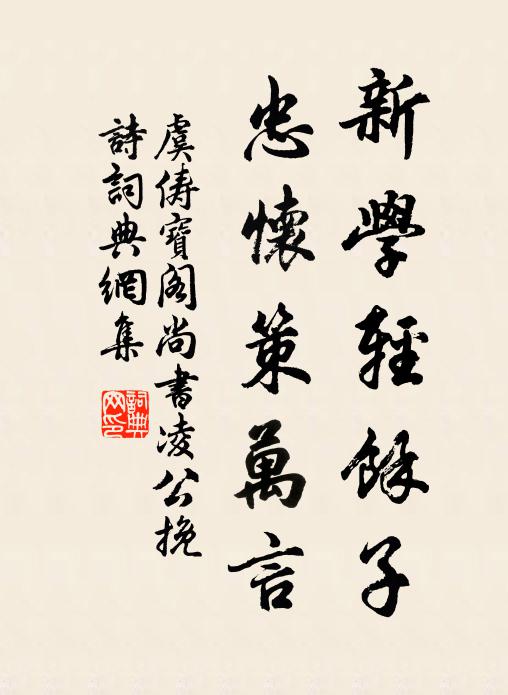 新學輕餘子
忠懷策萬言
虞儔寶閣尚書凌公挽
詩詞典網集
詞典网印